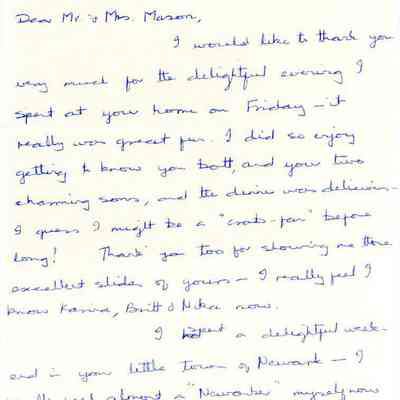 Dear Mr. & Mrs. Mason,
I would like to thank you
very much for the delightful evening I
spent at your home on Friday – it
really was great fun. I did so enjoy
getting to know you both, and your two
charming sons, and the dinner was delicious –
I guess I might be a "crabs-fan" before
long! Thank you too for showing me those
excellent slides of yours – I really feel I
know Karina, Britt & Nika now.
I spent a delightful week-
end in your little town of Newark – I
almost a "Newarker" myself now